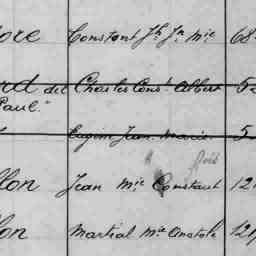 ore Constant Jh Jn Mie 68
ard dit Charles Const. Albert 5
Paul"
Eugène Jean Marie 5
llon Jean Mie Constant 12
lon Martial Mie Anatole 12